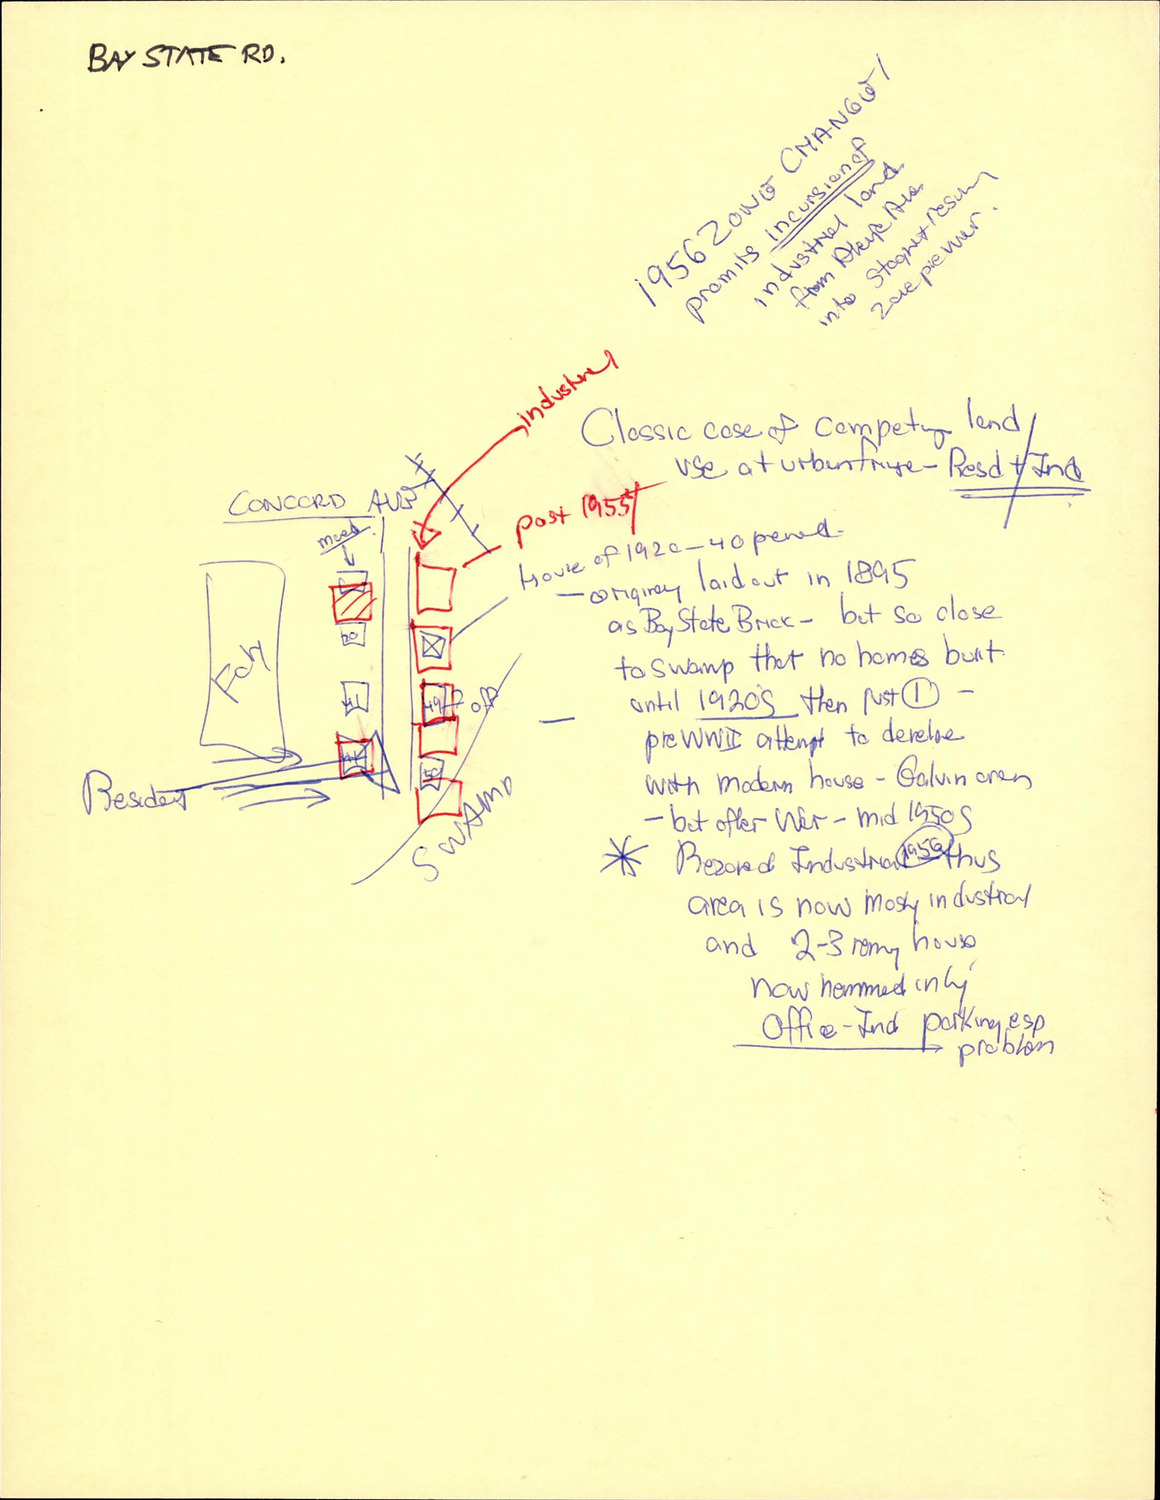 BAY STATE RD.
1956 ZONG CHANGE!
promits incursion of
industrial land
from Area
into
pre war.
industrial
Classic case of competing land
use at urban fringe - Resd + Ind
CONCORD AVE
moved
post 1955
House of 1920-40 period
- originay laid out in 1895
as Bay State Brick - but so close
to swamp that no homes built
until 1920s then just 1 -
pre WWII attempt to develop
with modern house - Galvin area
- but after War - mid 1950s
* Rezoned Industrial 1956 thus
area is now mosty industrial
and 2-3 house
now hemmed in by
Office - Ind parking esp
problem
Fcty
20
49 off
50
Resident
SWAMP